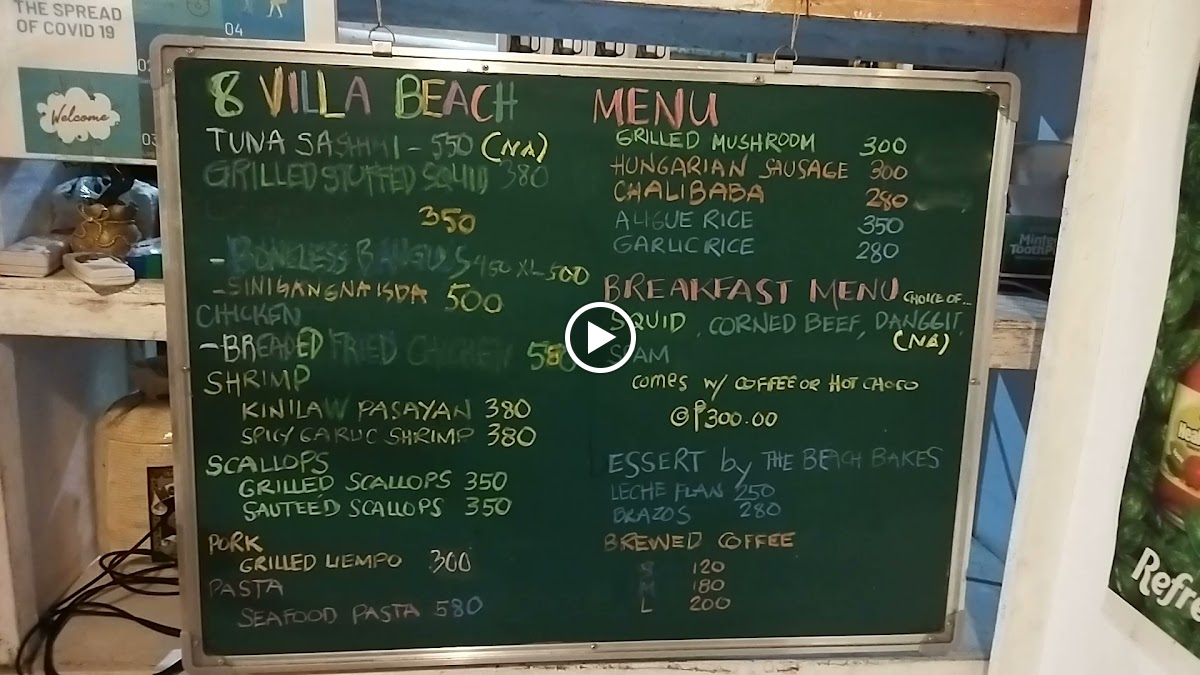 THE SPREAD
OF COVID 19
04
03
Welcome
8 VILLA BEACH MENU
TUNA SASHIMI - 550 (NA)
GRILLED STUFFED SQUID 380
350
- BONELESS BANGUS 450 XL 500
- SINIGANG NA ISDA 500
CHICKEN
- BREADED FRIED CHICKEN 580
SHRIMP
KINILAW PASAYAN 380
SPICY GARLIC SHRIMP 380
SCALLOPS
GRILLED SCALLOPS 350
SAUTEED SCALLOPS 350
PORK
GRILLED LIEMPO 300
PASTA
SEAFOOD PASTA 580
GRILLED MUSHROOM 300
HUNGARIAN SAUSAGE 300
CHALIBABA 280
ALIGUE RICE 350
GARLIC RICE 280
BREAKFAST MENU CHOICE OF...
SQUID, CORNED BEEF, DANGGIT,
(NA)
SPAM
COMES W/ COFFEE OR HOT CHOCO
@ ₱300.00
ESSERT by THE BEACH BAKES
LECHE FLAN 250
BRAZOS 280
BREWED COFFEE
S 120
M 180
L 200
Refre